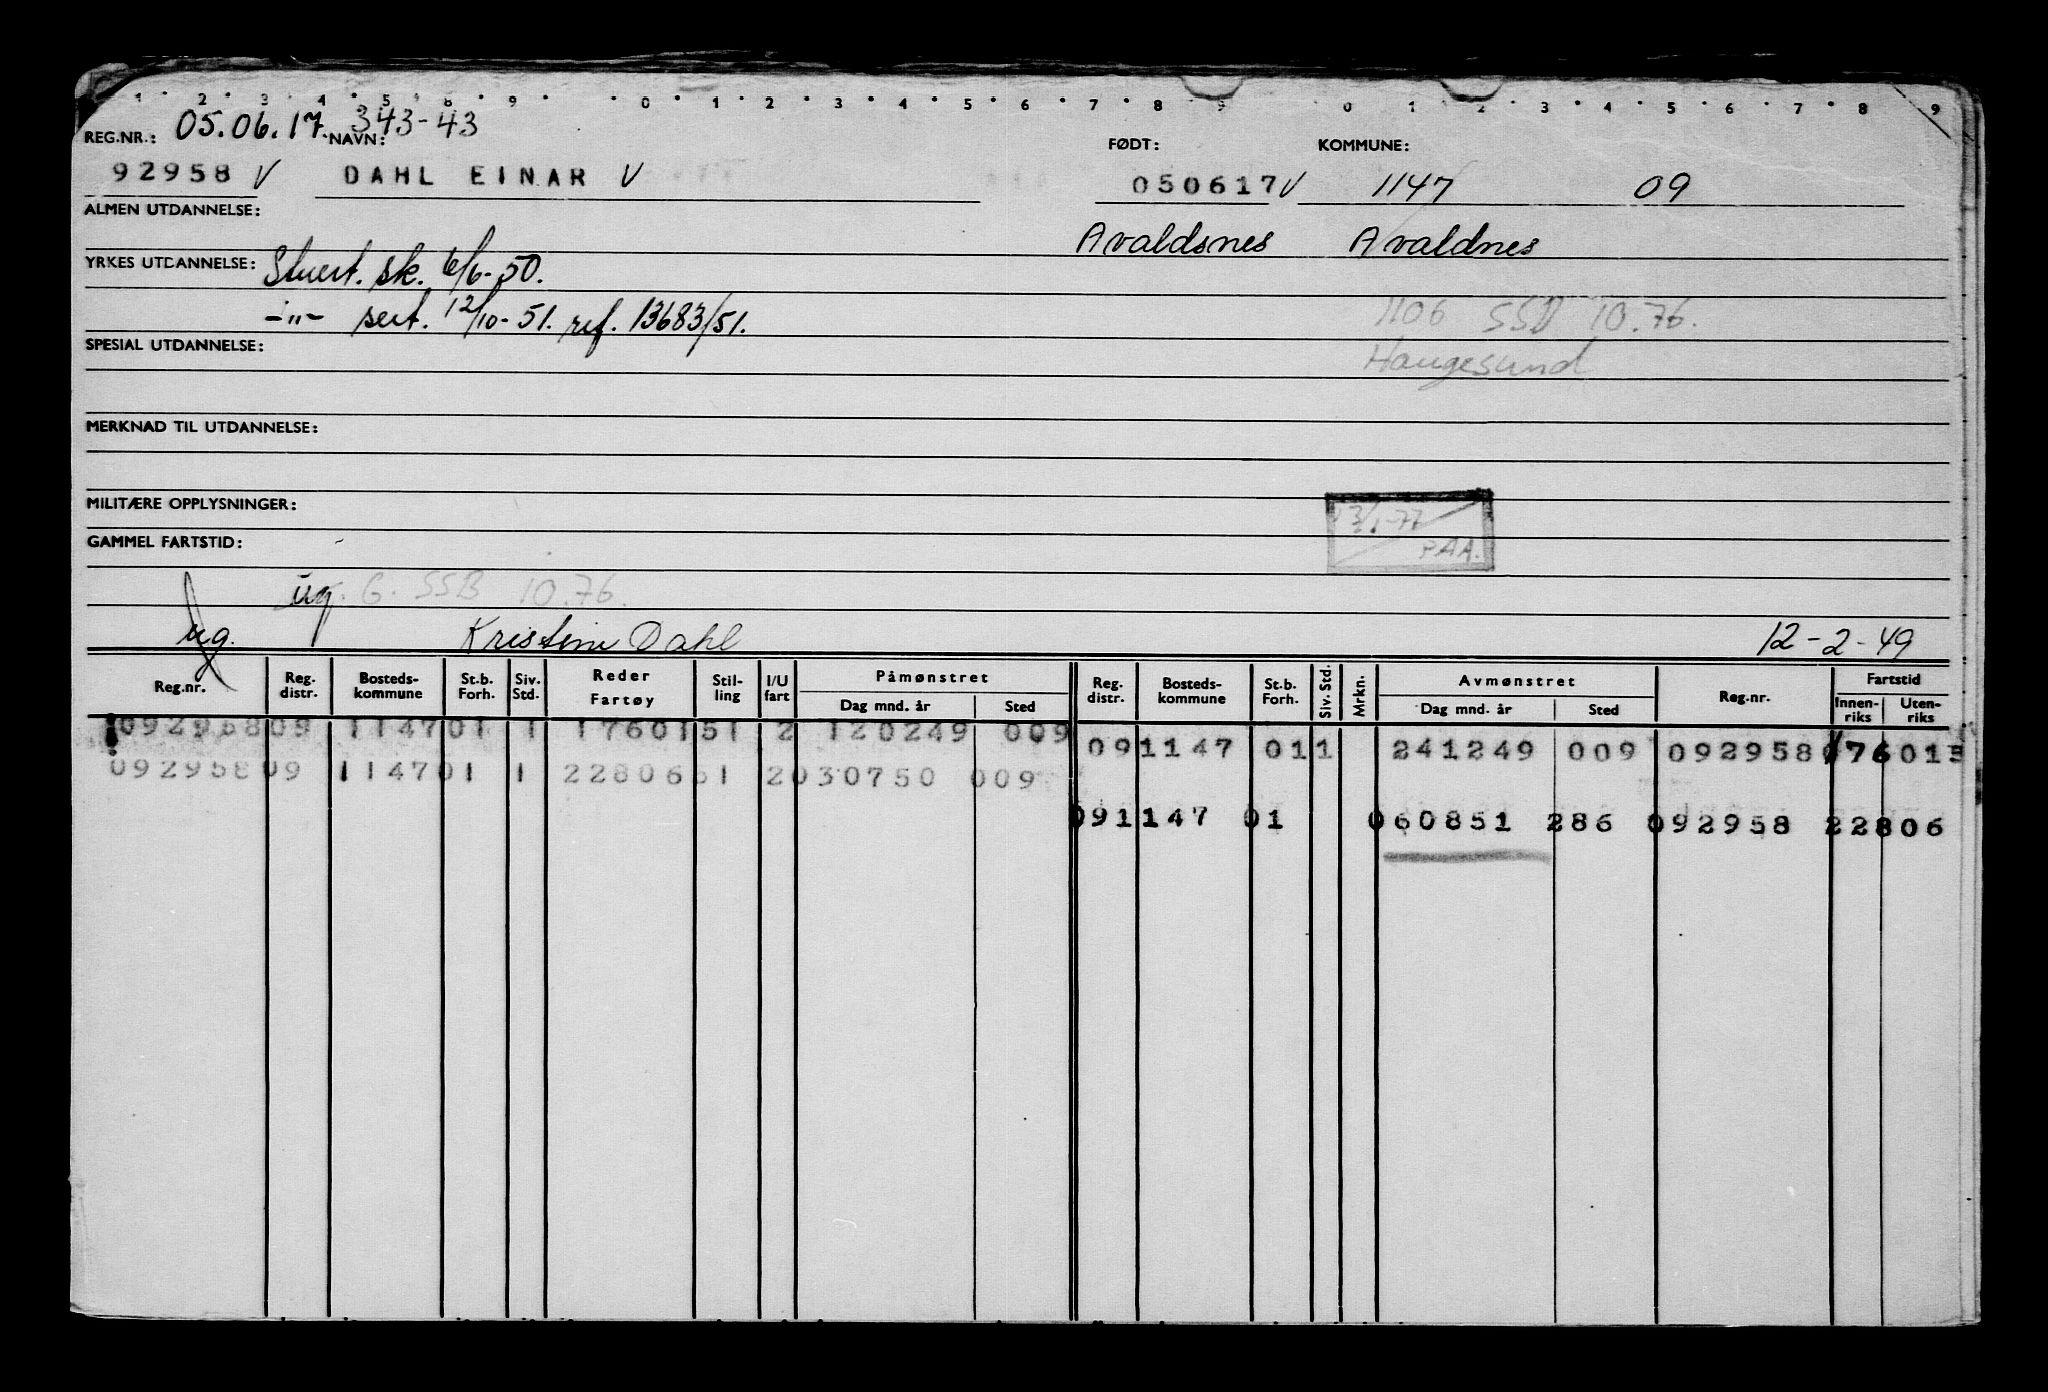 1 2 3 4 5 6 8 9 0 1 2 3 4 5 6 7 8 9 0 1 2 3 4 5 6 7 8 9
REG.NR.: 05.06.17. 343-43 NAVN: FØDT: KOMMUNE:
92958 V DAHL EINAR V 050617 V 1147 09
ALMEN UTDANNELSE: Avaldsnes Avaldnes
YRKES UTDANNELSE: Stuert. sk. 6/6-50.
-"- sert. 12/10-51. ref. 13683/51. 1106 SSB 10.76.
SPESIAL UTDANNELSE: Haugesund
MERKNAD TIL UTDANNELSE:
MILITÆRE OPPLYSNINGER: 3/1-77
GAMMEL FARTSTID: PAA.
ug. G. SSB 10.76.
ug. Kristine Dahl 12-2-49
Reg.nr. Reg. distr. Bosteds- kommune St.b. Forh. Siv. Std. Reder Fartøy Stil- ling I/U fart Påmønstret Dag mnd. år Sted Reg. distr. Bosteds- kommune St.b. Forh. Siv. Std. Mrkn. Avmønstret Dag mnd. år Sted Reg.nr. Fartstid Innen- riks Uten- riks
092958 09 1147 01 1 17601 51 2 120249 009
09 1147 01 1 241249 009 092958 17601
092958 09 1147 01 1 22806 51 2 030750 009
09 1147 01 060851 286 092958 22806